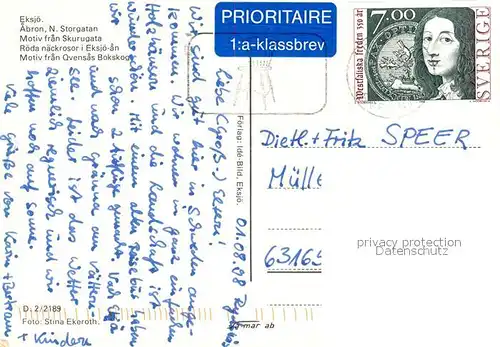 Eksjö.
Åbron, N. Storgatan
Motiv från Skurugata
Röda näckrosor i Eksjö-ån
Motiv från Qvensås Bokskog
PRIORITAIRE
1:a-klassbrev
7.00
Westfaliska freden 350 år
SVERIGE
01.08.98
Liebe (Groß-) Eltern!
Wir sind gut hier in Schweden ange-
kommen. Wir wohnen in ganz einfachen
Holzhäusern und die Landschaft ist
wunderschön. Mit einem alten Reisebus haben
wir schon 2 Ausflüge gemacht. Nach Eksjö
und nach Gränna am Vättern
see. Leider ist das Wetter
ziemlich regnerisch und wir
hoffen noch auf Sonne.
Viele Grüße von Karin + Bertram
+ Kindern
Förlag: Idé-Bild, Eksjö.
Dietl. + Fritz SPEER
Mülle
63165
privacy protection
Datenschutz
D. 2/2189
Foto: Stina Ekeroth.
mar ab